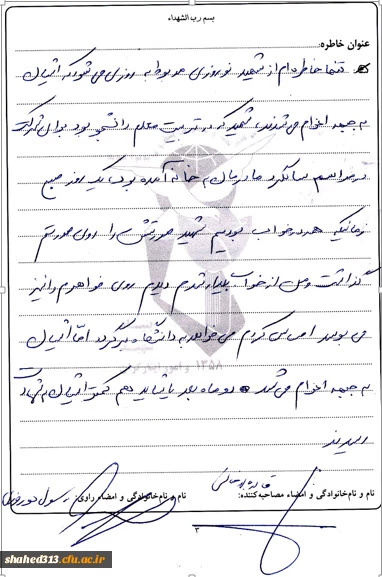 بسم رب الشهداء
عنوان خاطره:
تنها خاطره‌ام از شهید نوروزی مربوط به روزی می شود که ایشان
به جبهه اعزام می شدند، شهید که در تربیت معلم دانشجو بود برای شرکت
در مراسم سالگرد مادرمان به خانه آمده بود، یک روز صبح
زمانیکه همه در خواب بودیم شهید صورتش را روی صورتم
گذاشت و من از خواب بیدار شدم دیدم روی خواهرم را نیز
می بوسد احساس کردم می خواهد به دانشگاه برگردد اما ایشان
به جبهه اعزام می شد و دو ماه بعد یا شاید هم کمتر ایشان به شهادت
رسیدند
نام و نام‌خانوادگی و امضاء مصاحبه‌کننده:
نام و نام‌خانوادگی و امضاء راوی: رسول
۳
۱۳۵۸
shahed313.cfu.ac.ir